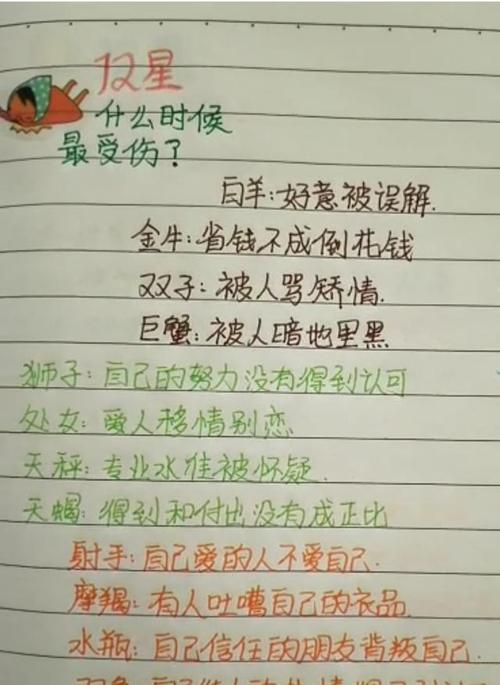 12星
什么时候
最受伤？
白羊:好意被误解.
金牛:省钱不成倒花钱
双子:被人骂矫情.
巨蟹:被人暗地里黑
狮子:自己的努力没有得到认可
处女:爱人移情别恋
天秤:专业水准被怀疑.
天蝎:得到和付出没有成正比
射手:自己爱的人不爱自己.
摩羯:有人吐嘈自己的衣品.
水瓶:自己信任的朋友背叛自己.